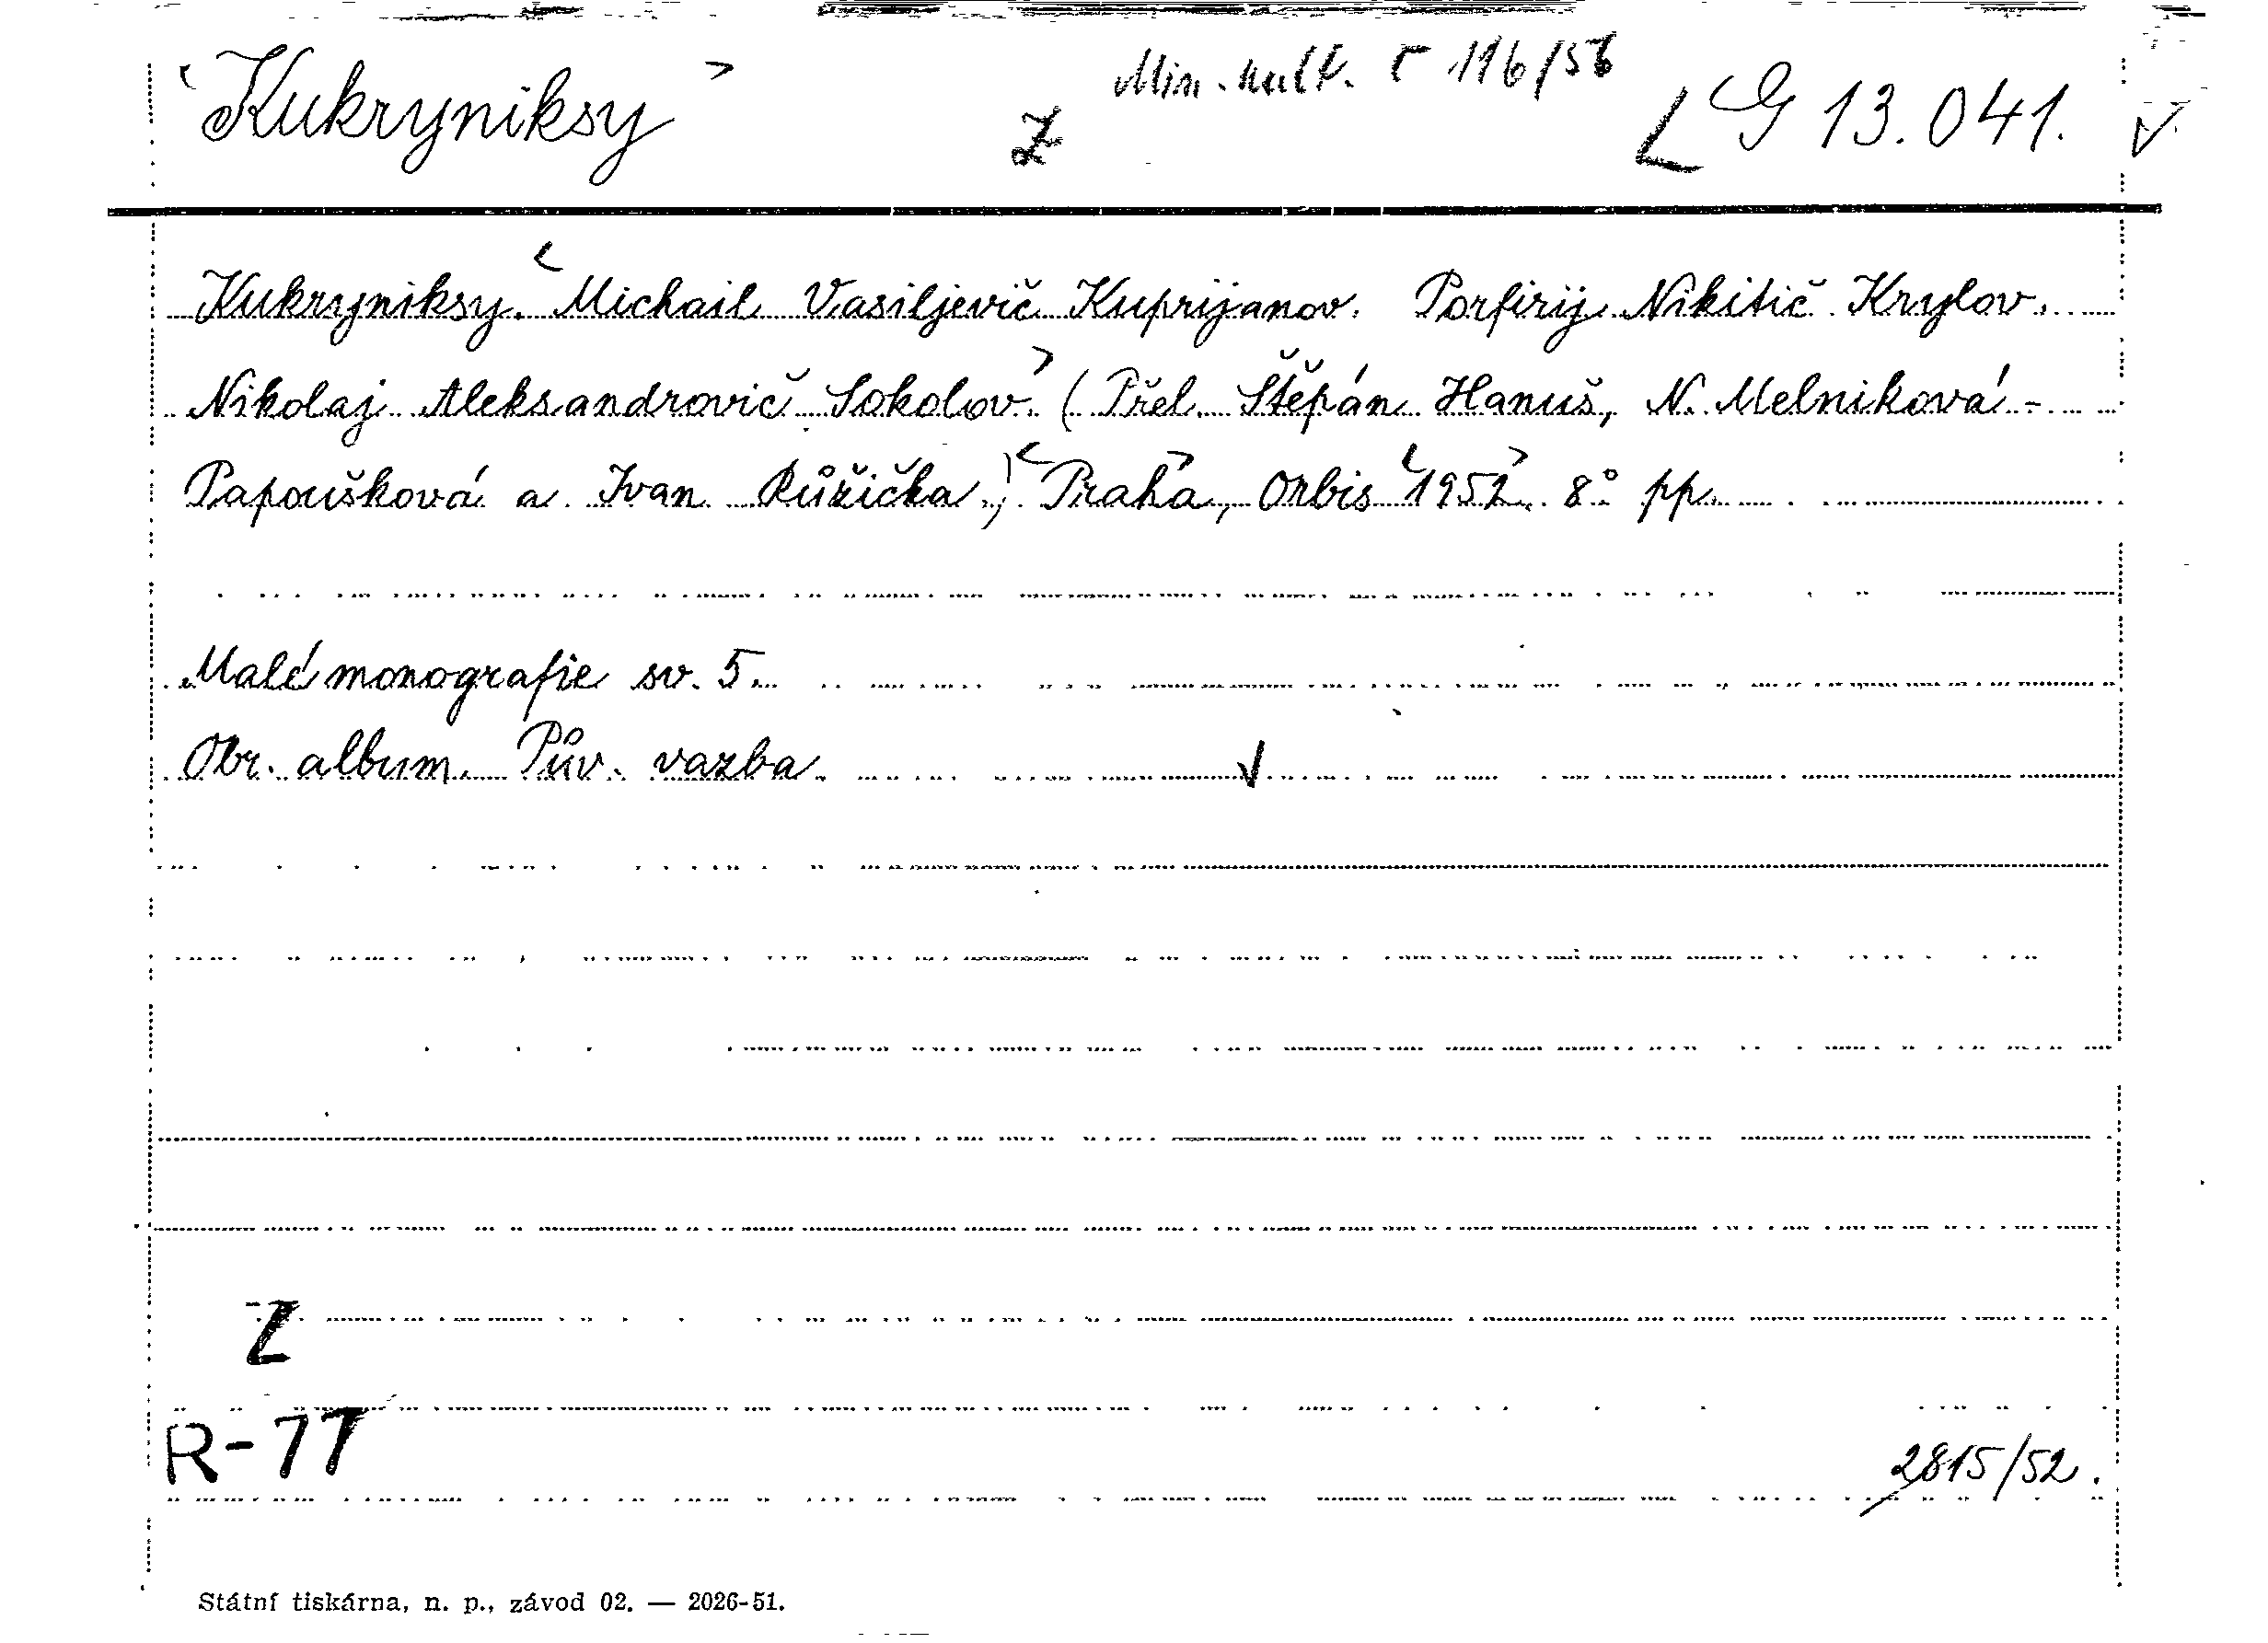 Min. kult. č 116/56
<Kukryniksy> Z G 13.041.
Kukryniksy. <Michail Vasiljevič Kuprijanov. Porfirij Nikitič Krylov.
Nikolaj Aleksandrovič Sokolov.> (Přel. Štěpán Hanuš, N. Melniková-
Papoušková a Ivan Růžička.) <Praha>, Orbis <1952>. 8° pp.
Malé monografie sv. 5.
Obr. album. Pův. vazba.
Z
R-77
2815/52.
Státní tiskárna, n. p., závod 02. — 2026-51.